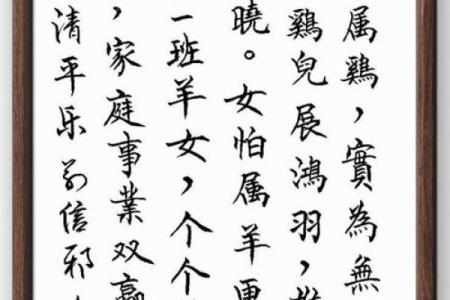 属鷄，實為無
鷄兒展鴻羽，
曉。女怕属羊更
一班羊女，个个
，家庭事業双贏
清平乐别信邪